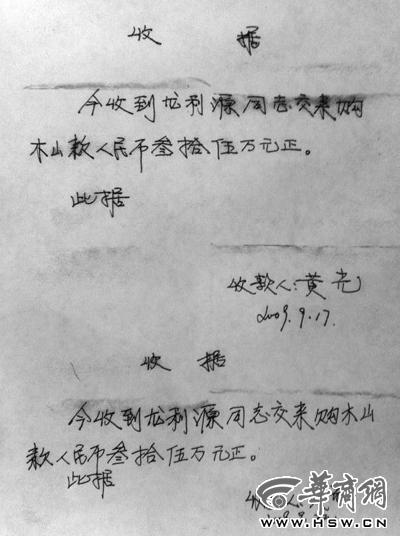 收 据
今收到龙利源同志交来购
木山款人民币叁拾伍万元正。
此据
收款人:黄光
2009.9.17.
收 据
今收到龙利源同志交来购木山
款人民币叁拾伍万元正。
此据
收款人
华商网
WWW.HSW.CN